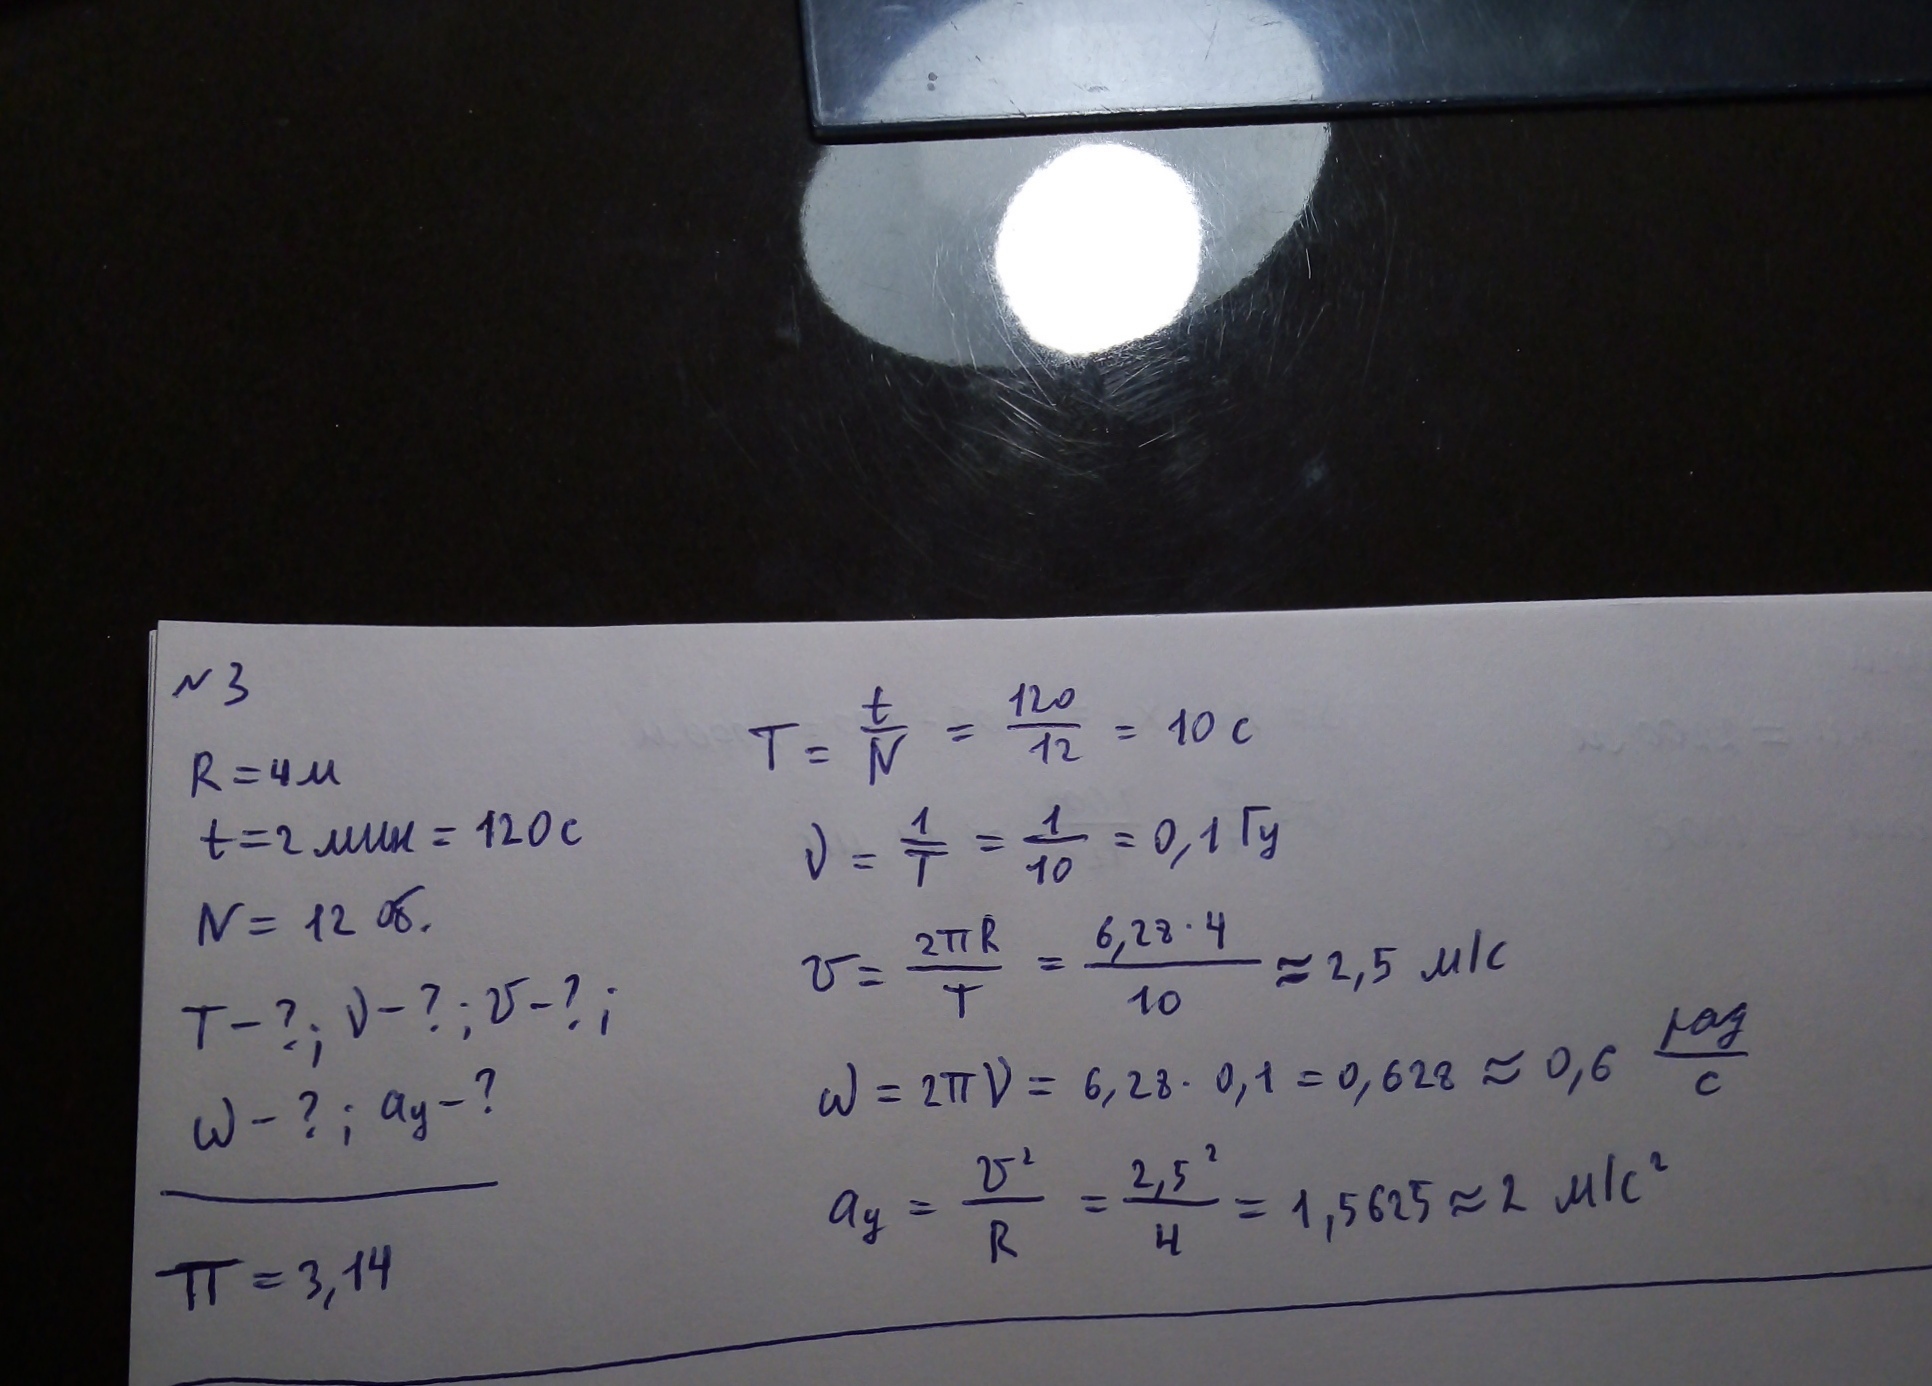 №3
R = 4 м
t = 2 мин = 120 с
N = 12 об.
T - ?; ν - ?; υ - ?;
ω - ?; aц - ?
π = 3,14
T = t/N = 120/12 = 10 с
ν = 1/T = 1/10 = 0,1 Гц
υ = 2πR/T = 6,28 · 4/10 ≈ 2,5 м/с
ω = 2πν = 6,28 · 0,1 = 0,628 ≈ 0,6 рад/с
aц = υ²/R = 2,5²/4 = 1,5625 ≈ 2 м/с²